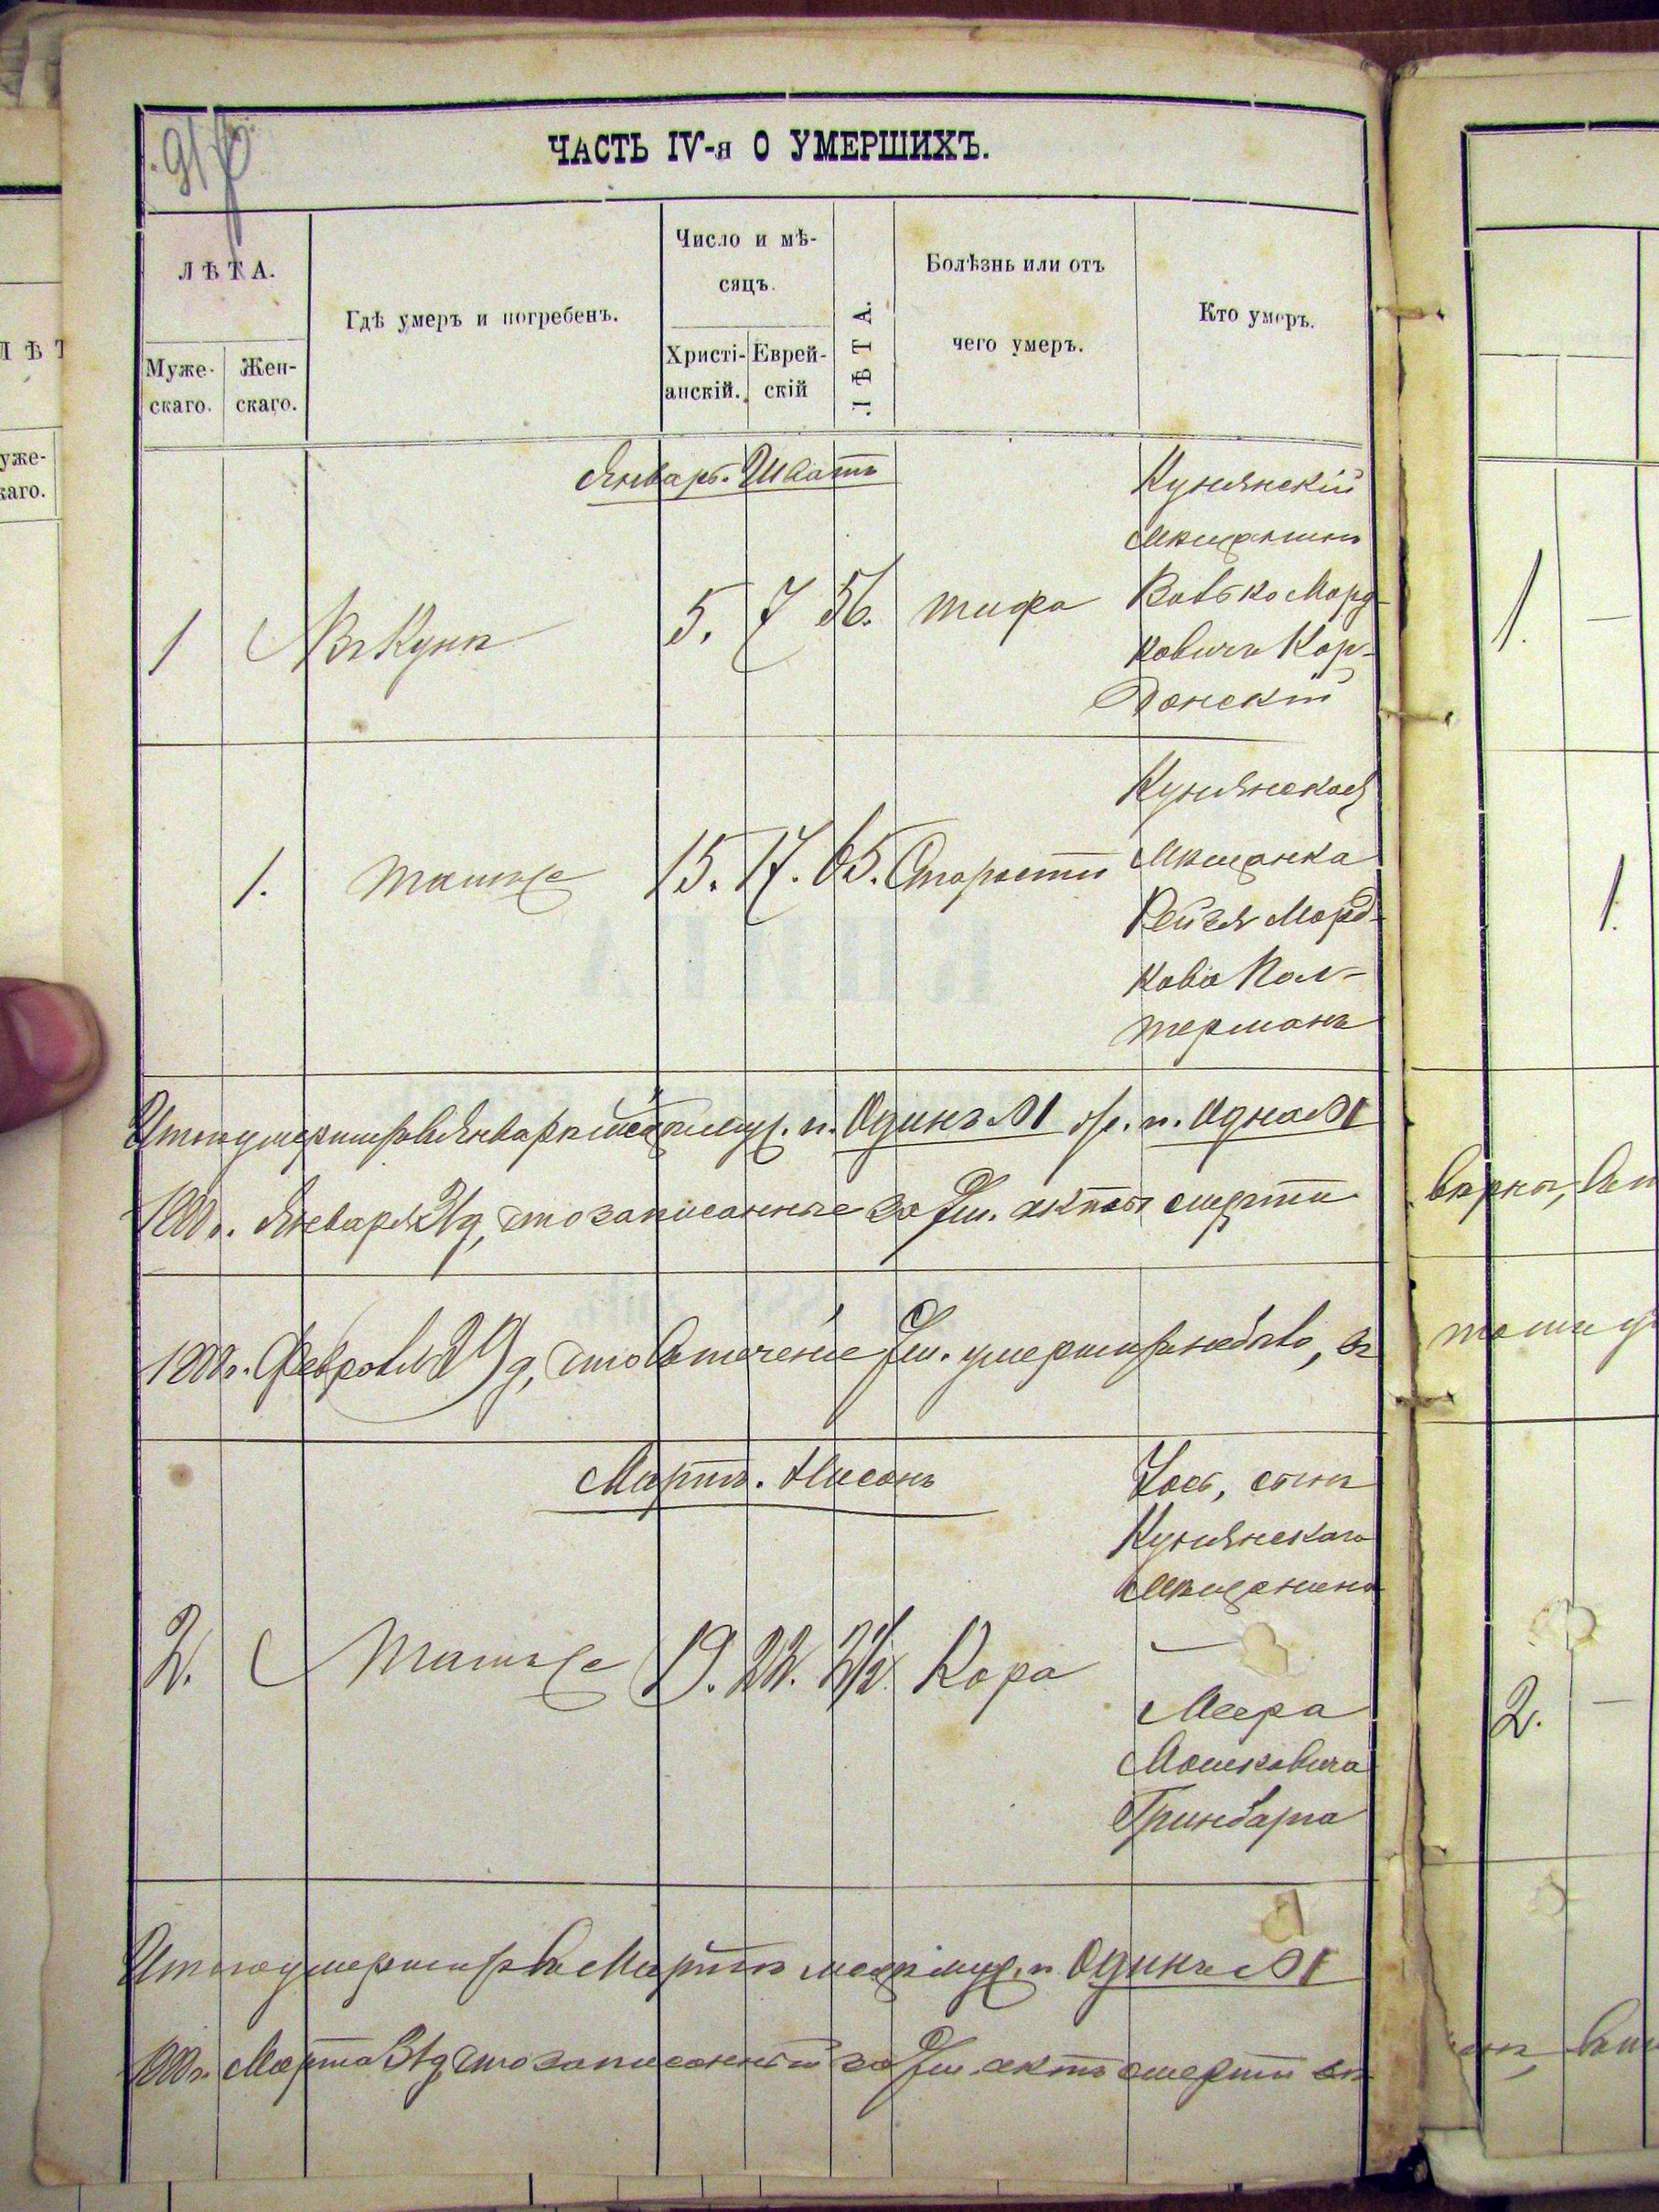 ЧАСТЬ IV-я О УМЕРШИХЪ.
ЛѢТА.
Муже-
скаго.
Жен-
скаго.
Гдѣ умеръ и погребенъ.
Число и мѣ-
сяцъ.
Христі-
анскій.
Еврей-
скій
ЛѢТА.
Болѣзнь или отъ
чего умеръ.
Кто умеръ.
Январь. Шватъ
1 Въ Кунѣ 5. 7 56. тифа
Кунянскій
Мѣщанинъ
Вовько Морд-
ковичъ Кор-
донскій
1. тамъже 15. 17. 65. Старости
Кунянская
Мѣщанка
Рейзя Морд-
кова Кол-
терманъ
Итого умершихъ въ Январѣ мѣсяцѣ муж. п. Одинъ №1 ж. п. Одна №1
1888 г. Января 31 д, что записанные за сей м. акты смерти
1888 г. Февраля 29 д, что въ теченіе сего м. умершихъ небыло, въ
Мартъ. Нисанъ
2. тамъже 19. 22. 2½ Кора
Іось, сынъ
Кунянскаго
Мѣщанина
—
Меера
Мошковича
Гринбарга
Итого умершихъ въ Мартѣ мѣсяцѣ муж. п Одинъ №1
1888 г. Марта 31 д что записанный за сей м. актъ смерти въ
уже-
каго.
1. —
1.
вѣрны,
2. —